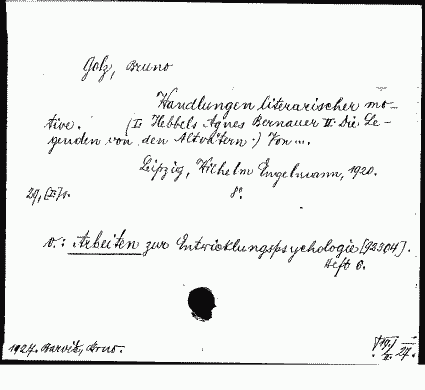 Golz, Bruno
Handlungen literarischer mo-
tive. (I. Hebbels Agnes Bernauer II. Die Le-
genden von den Altvätern.) Von ...
Leipzig, Wilhelm Engelmann, 1920.
8°.
v.: Arbeiten zur Entwicklungspsychologie [92304].
Heft 6.
1927.
27.